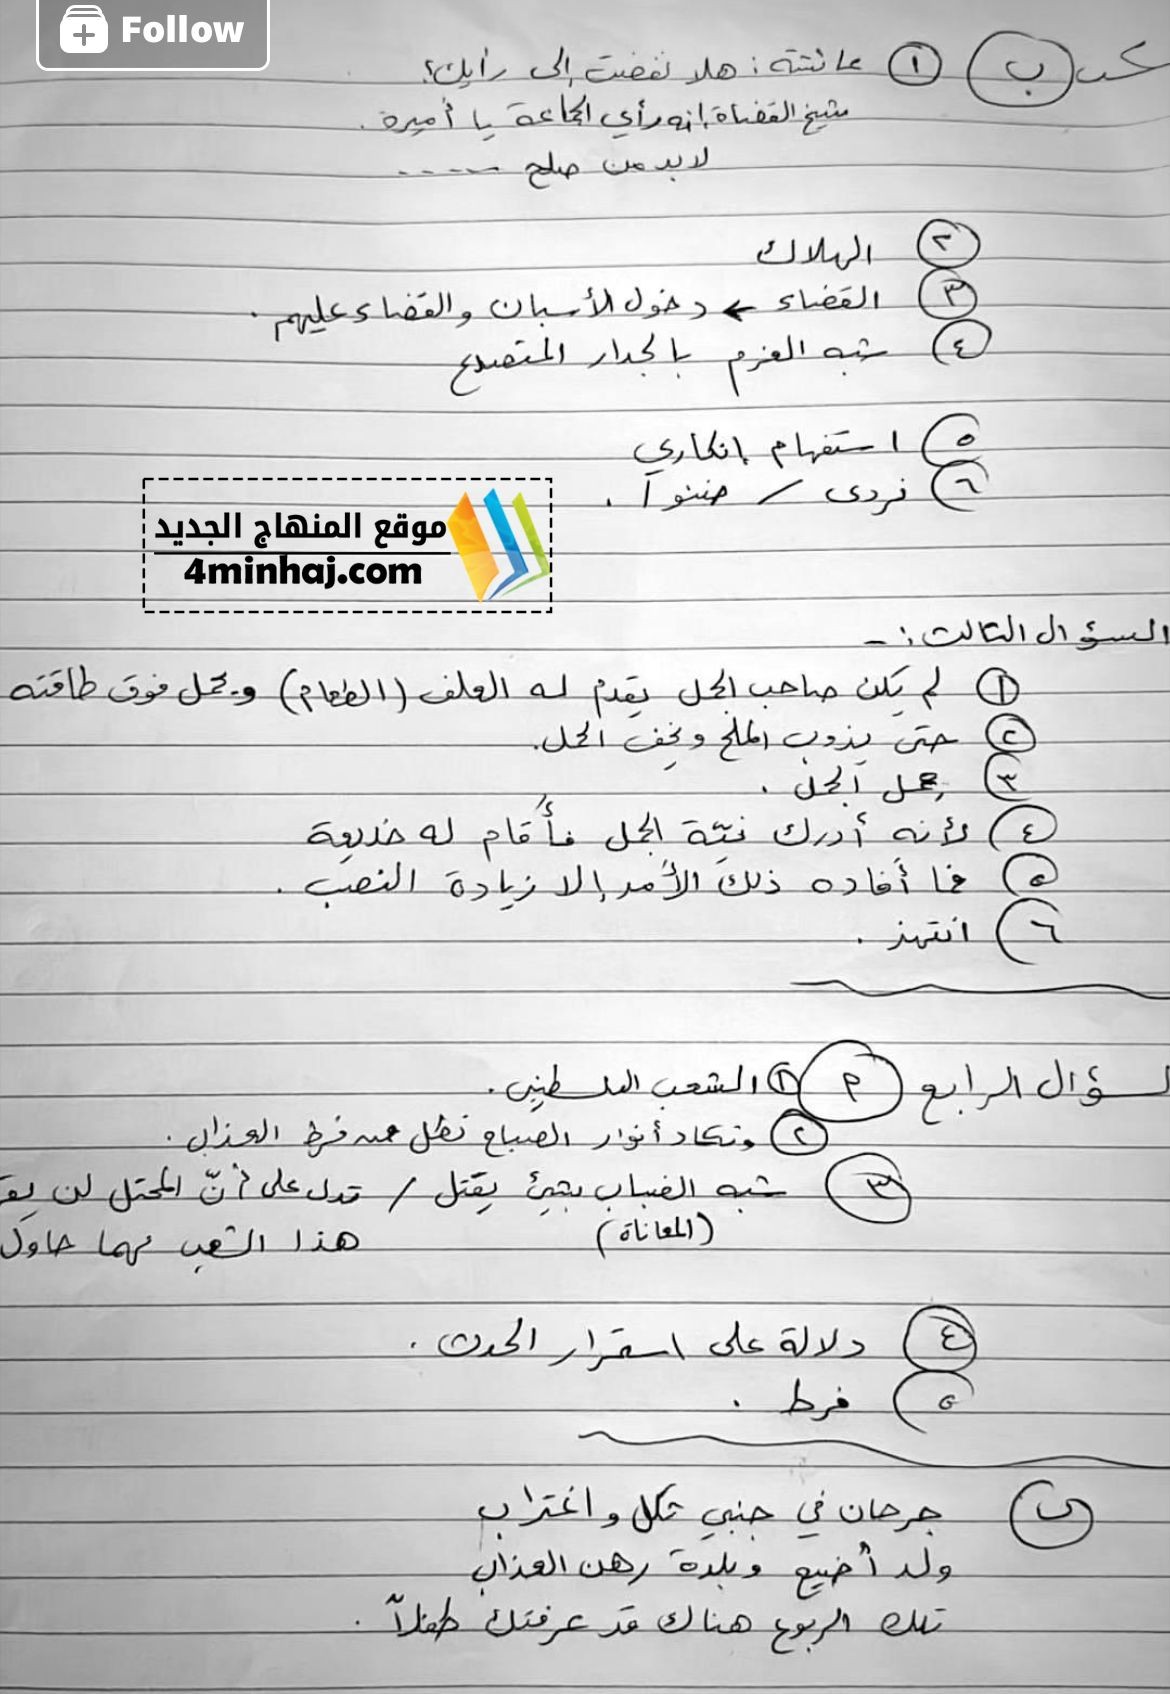 Follow
ب ١ عائشة: هلا نفضت إلى رأيك؟
شيخ القضاة: إنه رأي الجماعة يا أميرة.
لابد من صلح -----
٢ الهلاك
٣ القضاء ← دخول الأسبان والقضاء عليهم.
٤ شبه العزم بالجدار المتصدع
٥ استفهام إنكاري
٦ فردى /
موقع المنهاج الجديد
4minhaj.com
السؤال الثالث:-
١ لم يكن صاحب الجمل يقدم له العلف (الطعام) ويحمل فوق طاقته
٢ حتى يذوب الملح ويخف الحمل.
٣ الجمل.
٤ لأنه أدرك نيّة الجمل فأقام له خديعة
٥ فما أفاده ذلك الأمر إلا زيادة النصب.
٦ انتهز.
سؤال الرابع م ١ الشعب الفلسطيني.
٢ وتكاد أنوار الصباح تطل من فرط العذاب.
٣ شبه الضباب بشيء يقتل / تدل على أنّ المحتل لن
(المعاناة)
هذا الشعب مهما حاول
٤ دلالة على استمرار الحدث.
٥ فرط.
ب جرحان في جنبي ثكل واغتراب
ولد أضيع وبلدة رهن العذاب
تلك الربوع هناك قد عرفتك طفلاً.